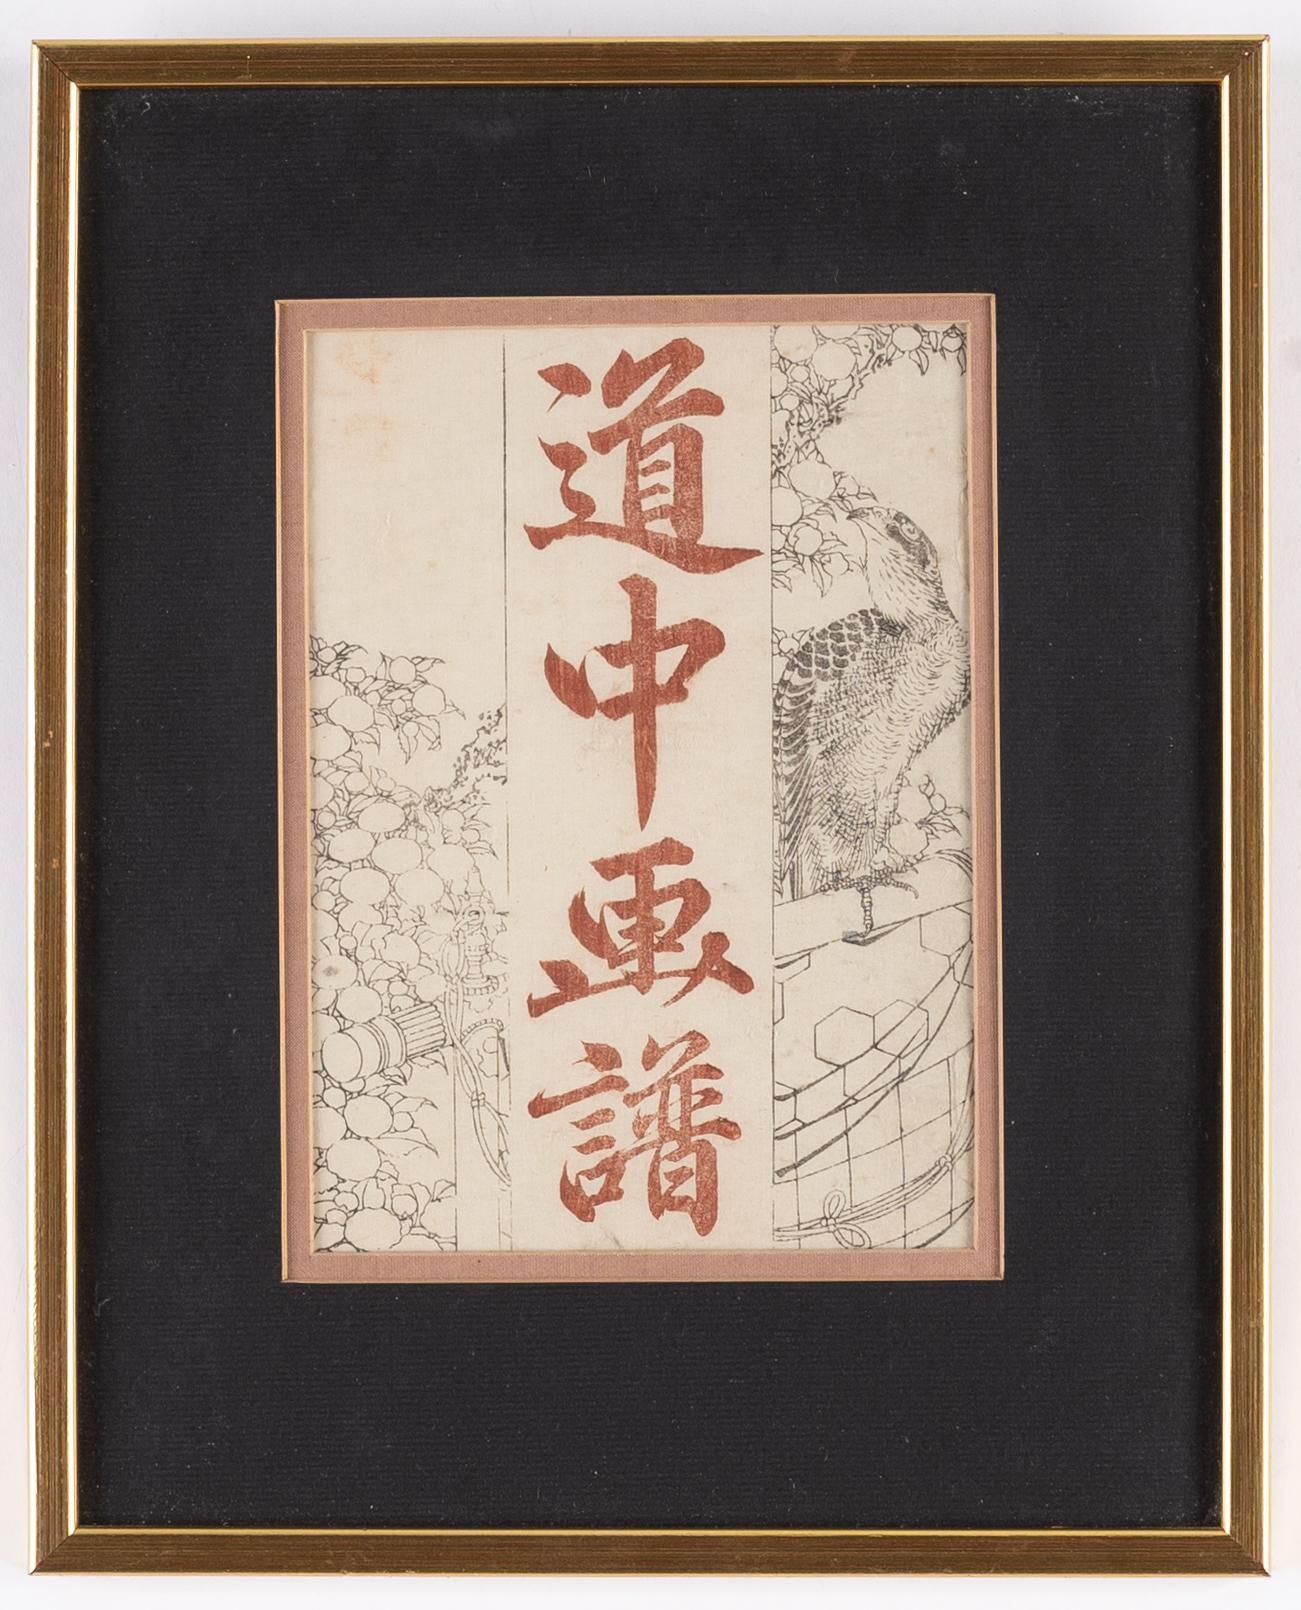 道中画譜